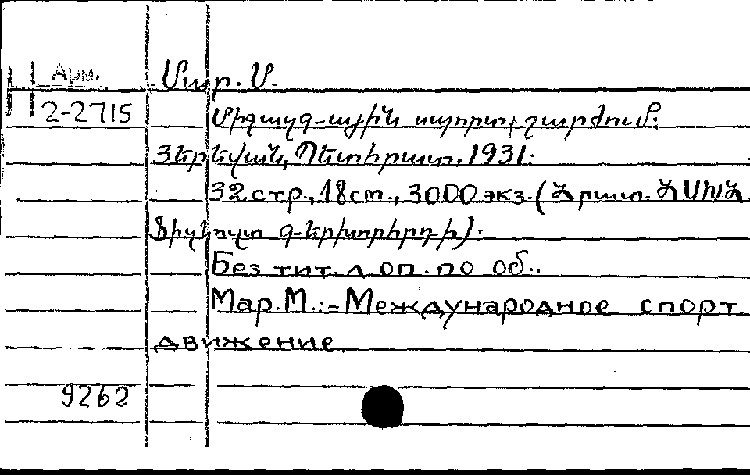 Арм. Մար. Մ.
2-2715 Միջազգ-ային սպորտ, շարժում:
Յերևան, Պետհրատ, 1931:
32 стр., 18 cm., 3000 экз. (Հրատ. ՀՍԽՀ
Ֆիզկուլտ գ-երխորհրդ-ի):
Без тит. л. оп. по об..
Мар. М.:-Международное спорт
движение
9262